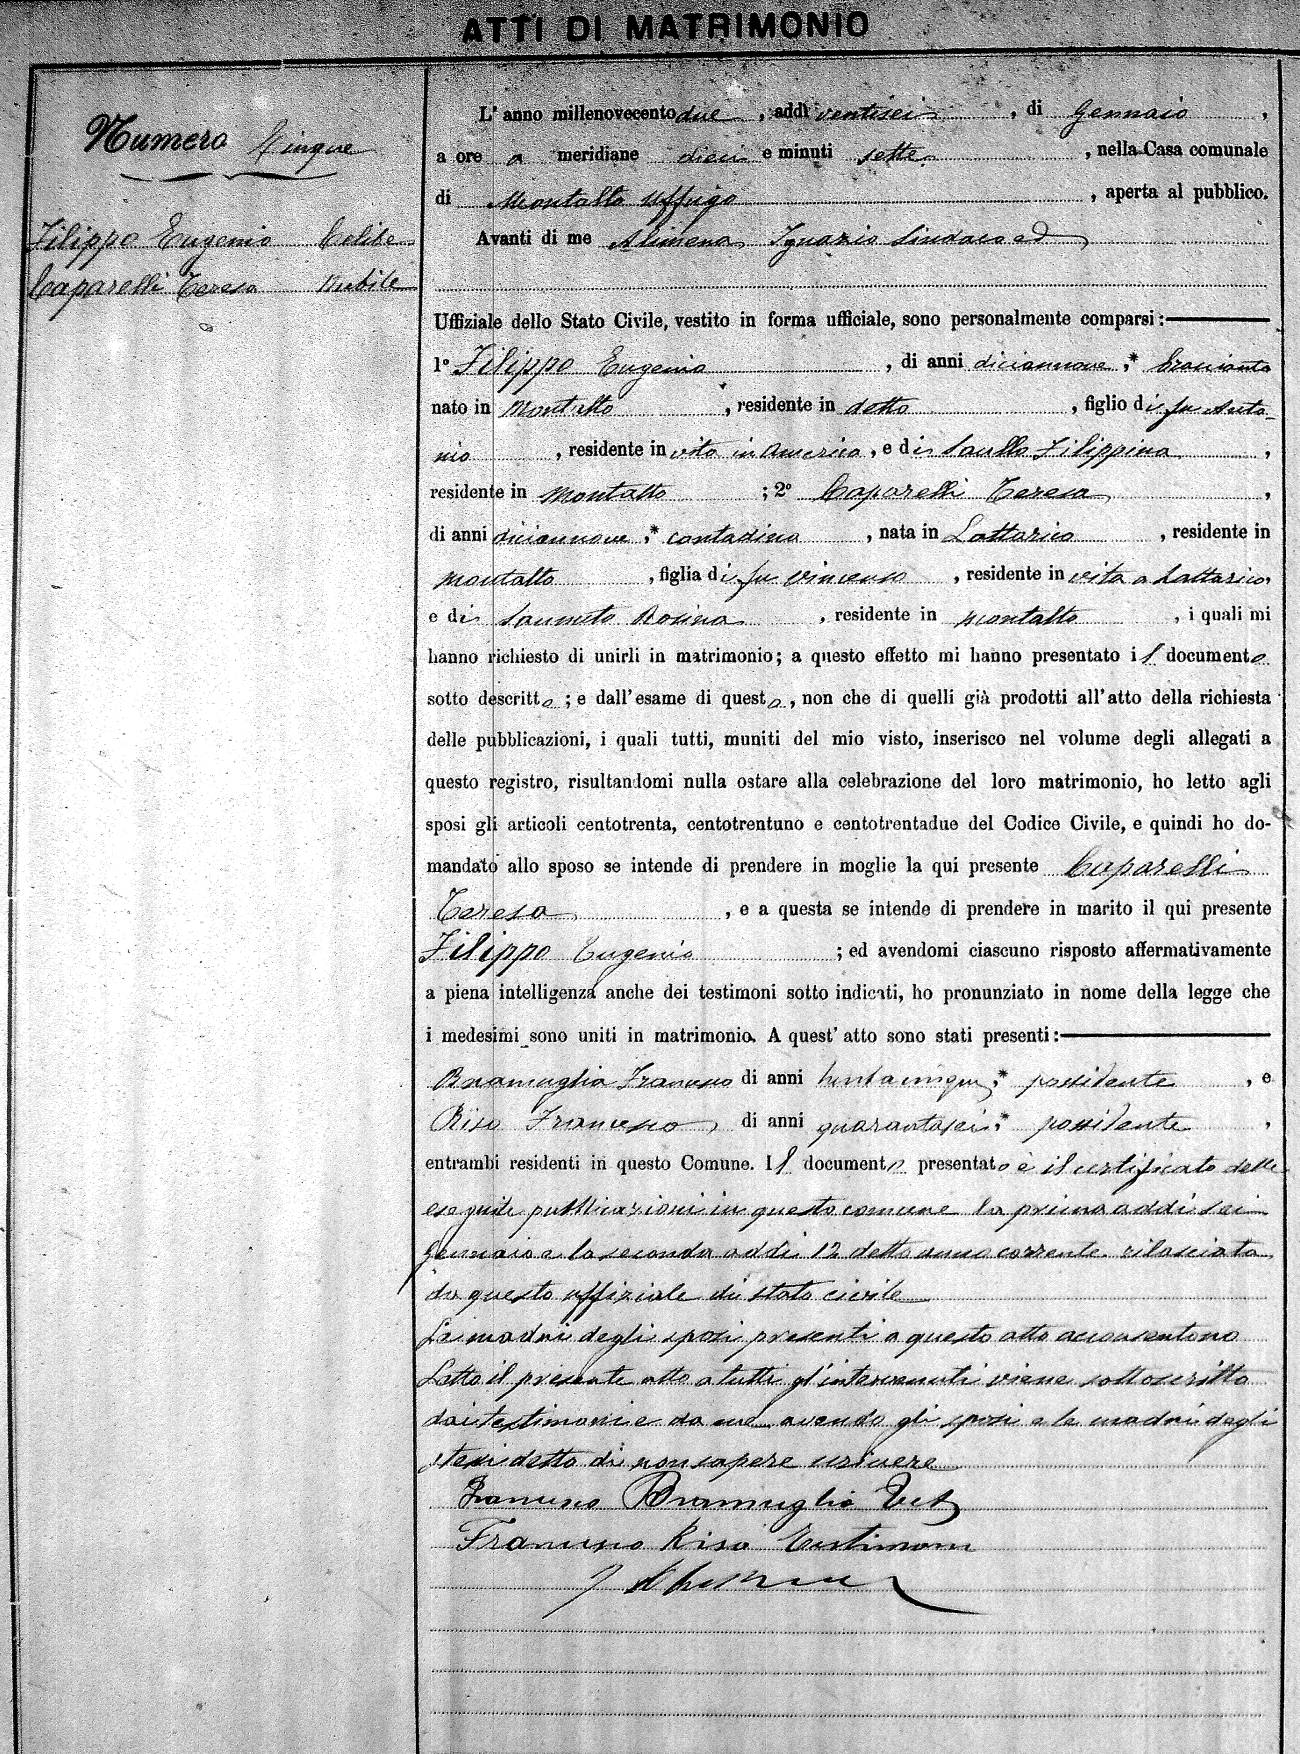 ATTI DI MATRIMONIO
Numero Cinque
Filippo Eugenio Celibe
Caparelli Teresa Nubile
L' anno millenovecento due , addì ventisei , di Gennaio ,
a ore a meridiane dieci e minuti sette , nella Casa comunale
di Montalto Uffugo , aperta al pubblico.
Avanti di me Alimena Ignazio Sindaco ed
Uffiziale dello Stato Civile, vestito in forma ufficiale, sono personalmente comparsi:
1º Filippo Eugenio , di anni diciannove ,* bracciante
nato in Montalto , residente in detto , figlio di fu Anto-
nio , residente in vita in America , e di Saullo Filippina ,
residente in Montalto ; 2º Caparelli Teresa ,
di anni diciannove ,* contadina , nata in Lattarico , residente in
Montalto , figlia di fu Vincenzo , residente in vita a Lattarico,
e di Rosina , residente in Montalto , i quali mi
hanno richiesto di unirli in matrimonio; a questo effetto mi hanno presentato il documento
sotto descritto ; e dall'esame di questo , non che di quelli già prodotti all'atto della richiesta
delle pubblicazioni, i quali tutti, muniti del mio visto, inserisco nel volume degli allegati a
questo registro, risultandomi nulla ostare alla celebrazione del loro matrimonio, ho letto agli
sposi gli articoli centotrenta, centotrentuno e centotrentadue del Codice Civile, e quindi ho do-
mandato allo sposo se intende di prendere in moglie la qui presente Caparelli
Teresa , e a questa se intende di prendere in marito il qui presente
Filippo Eugenio ; ed avendomi ciascuno risposto affermativamente
a piena intelligenza anche dei testimoni sotto indicati, ho pronunziato in nome della legge che
i medesimi sono uniti in matrimonio. A quest' atto sono stati presenti:
Bramuglia Francesco di anni trentacinque ,* possidente , e
Riso Francesco , di anni quarantasei ,* possidente ,
entrambi residenti in questo Comune. Il documento presentato è il certificato delle
eseguite pubblicazioni in questo comune la prima addì sei
Gennaio e la seconda addì 12 detto anno corrente rilasciato
da questo uffiziale di stato civile
Le madri degli sposi presenti a questo atto acconsentono
Letto il presente atto a tutti gl'intervenuti viene sottoscritto
dai testimoni e da me avendo gli sposi e le madri degli
stessi detto di non sapere scrivere
Francesco Bramuglia Test
Francesco Riso Testimone